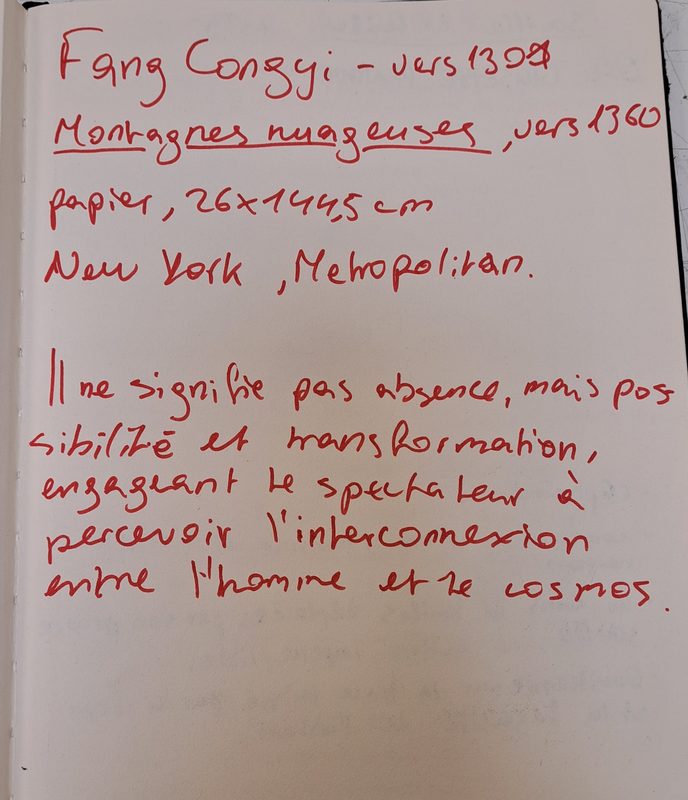 Fang Congyi - vers 1301
Montagnes nuageuses, vers 1360
papier, 26x144,5 cm
New York, Metropolitan.
Il ne signifie pas absence, mais pos
sibilité et transformation,
engageant le spectateur à
percevoir l'interconnexion
entre l'homme et le cosmos.